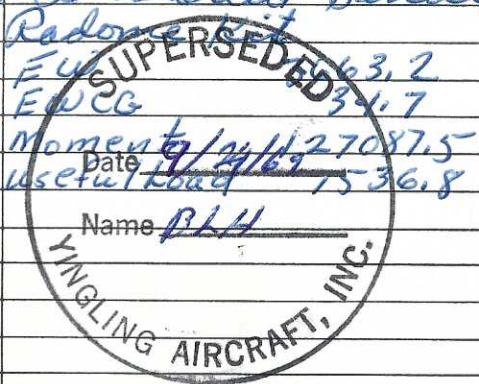 Radome Kit
EW 63.2
EWCG 34.7
Moment 127087.5
useful Load 1536.8
SUPERSEDED
Date 9/29/69
Name BLH
YINGLING AIRCRAFT, INC.